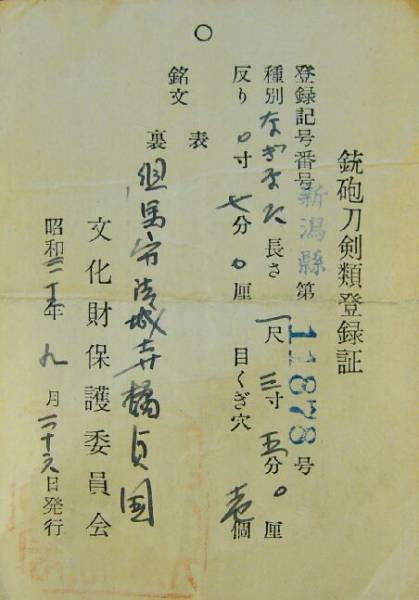 銃砲刀剣類登録証
登録記号番号 新潟縣 第 11878 号
種別 なぎなた 長さ 一尺 三寸 五分 〇厘
反り 〇寸 七分 〇厘 目くぎ穴 壱個
銘文 表
裏 但馬守法城寺橘貞国
文化財保護委員会
昭和 年 九月二十六日発行